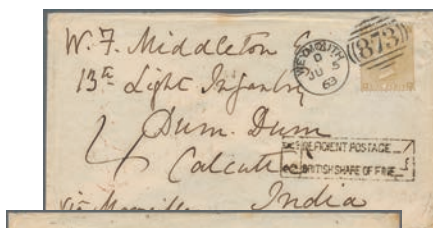 W. F. Middleton
13th Light Infantry
Dum. Dum
Calcutta
India
via
WEYMOUTH
D
JU 5
63
873
DEFICIENT POSTAGE
BRITISH SHARE OF FINE